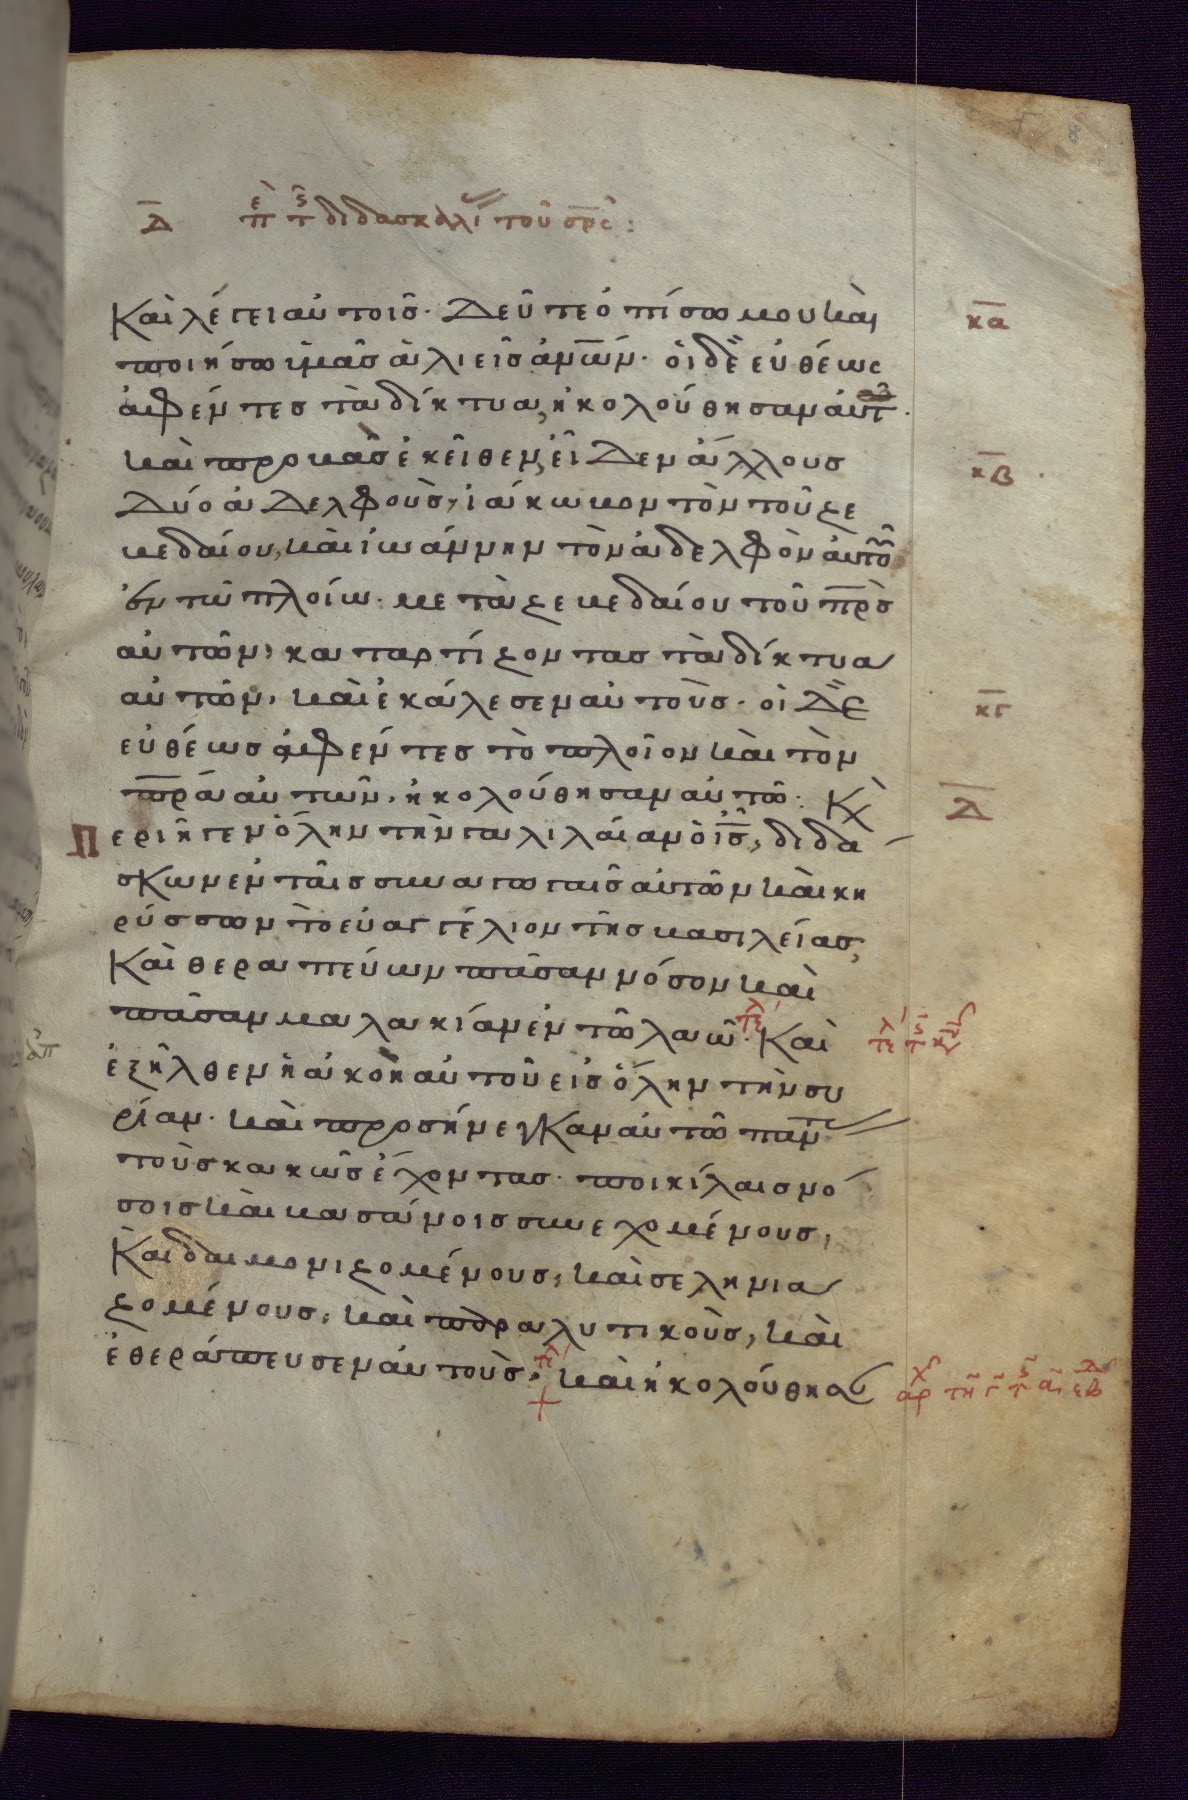 Δ ἐπ τ διδασκαλί τοῦ σρς :
Καὶ λέγει αὐτοῖς· Δεῦτε ὀπίσω μου καὶ
κα
ποιήσω ὑμᾶς ἁλιεῖς ἀνων· οἱ δὲ εὐθέως
ἀφέντες τὰ δίκτυα, ἠκολούθησαν αὐτῶ.
καὶ προβὰς ἐκεῖθεν, εἶδεν ἄλλους
κβ
δύο ἀδελφοὺς, ἰάκωβον τὸν τοῦ ζε
βεδαίου, καὶ ἰωάννην τὸν ἀδελφὸν αὐτοῦ
ἐν τῶ πλοίω· μετὰ ζεβεδαίου τοῦ πρς
αὐτῶν, καταρτίζοντας τὰ δίκτυα
αὐτῶν, καὶ ἐκάλεσεν αὐτούς· οἱ δὲ
κγ
εὐθέως ἀφέντες τὸ πλοῖον καὶ τὸν
πρα αὐτῶν, ἠκολούθησαν αὐτῶ. Κὶ
Δ
Περιῆγεν ὅλην τὴν γαλιλαίαν ὁ ις, διδά
σκων ἐν ταῖς συναγωγαῖς αὐτῶν καὶ κη
ρύσσων τὸ εὐαγγέλιον τῆς βασιλείας,
Καὶ θεραπεύων πᾶσαν νόσον καὶ
πᾶσαν μαλακίαν ἐν τῶ λαῶ· τελ Καὶ
τελ τ κυ
ἐξῆλθεν ἡ ἀκοὴ αὐτοῦ εἰς ὅλην τὴν συ
ρίαν· καὶ προσήνεγκαν αὐτῶ πάν
τοὺς κακῶς ἔχοντας· ποικίλαις νό
σοις καὶ βασάνοις συνεχομένους,
Καὶ δαιμονιζομένους, καὶ σεληνια
ζομένους, καὶ παραλυτικοὺς, καὶ
ἐθεράπευσεν αὐτούς· τελ καὶ ἠκολούθησ
αρχ τῆ γ τ